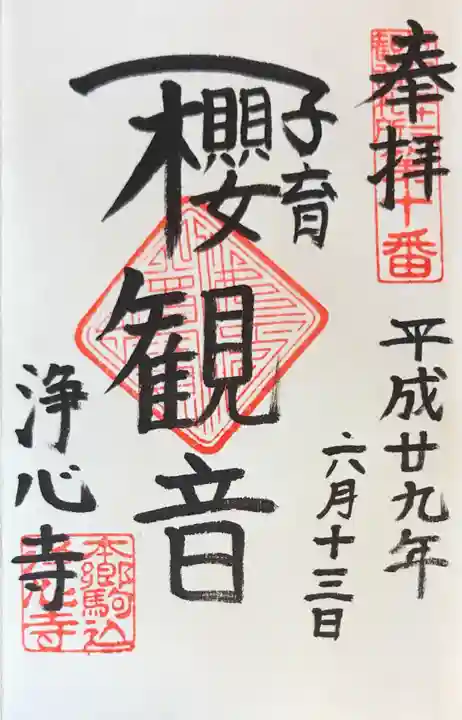 奉拝
平成廿九年
六月十三日
子育
櫻観音
浄心寺
十番
本郷駒込